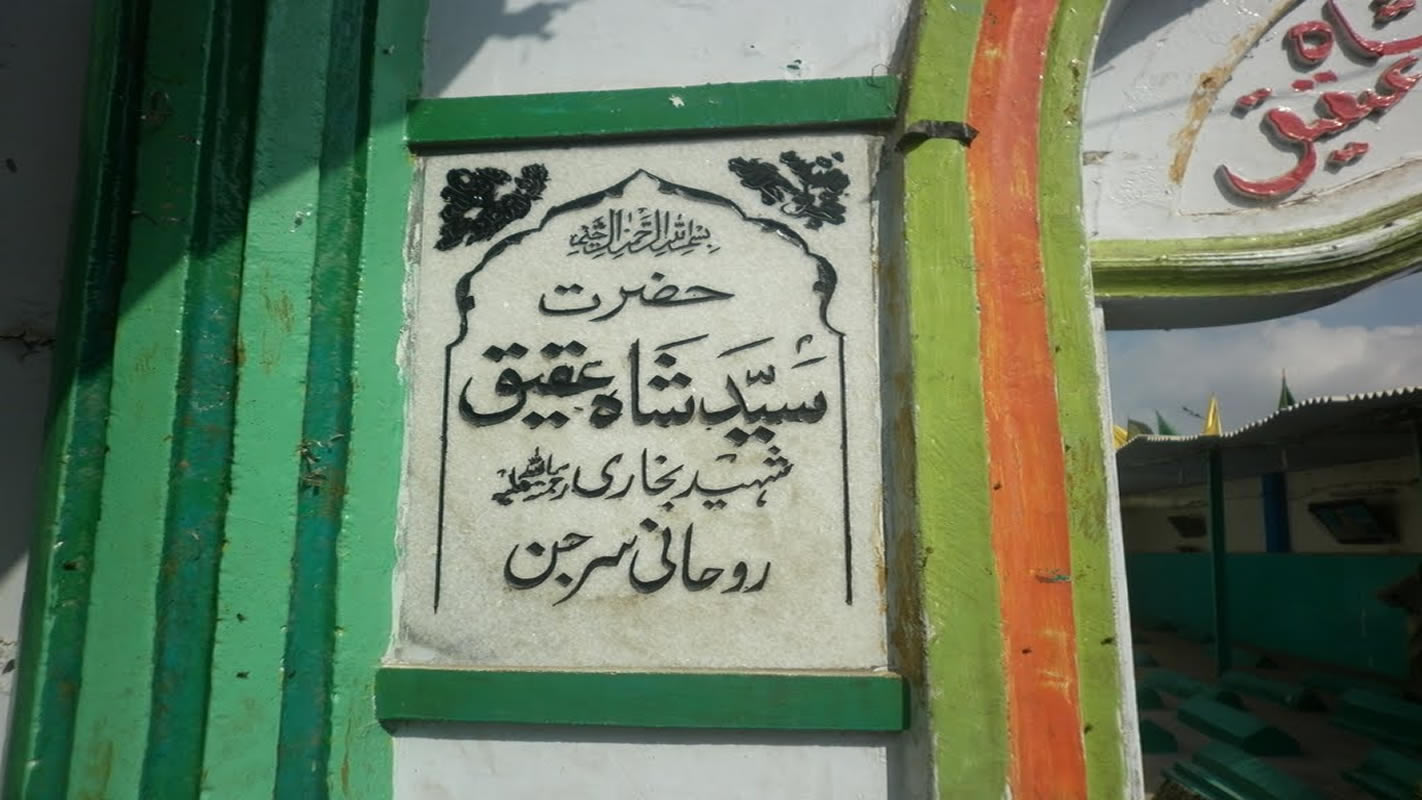 بسم اللہ الرحمن الرحیم
حضرت
سیّد شاہ عقیق
شہید بخاری رحمۃ اللہ علیہ
روحانی سرجن
شاہ
عقیق